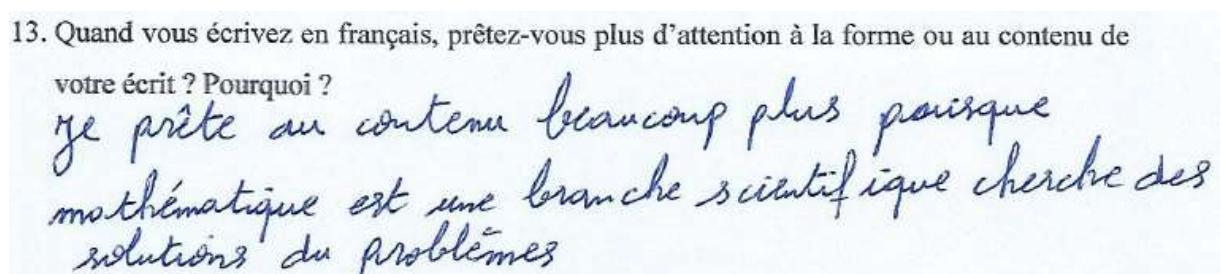 13. Quand vous écrivez en français, prêtez-vous plus d'attention à la forme ou au contenu de
votre écrit ? Pourquoi ?
Je prête au contenu beaucoup plus pouisque
mathématique est une branche scientifique cherche des
solutions du problêmes